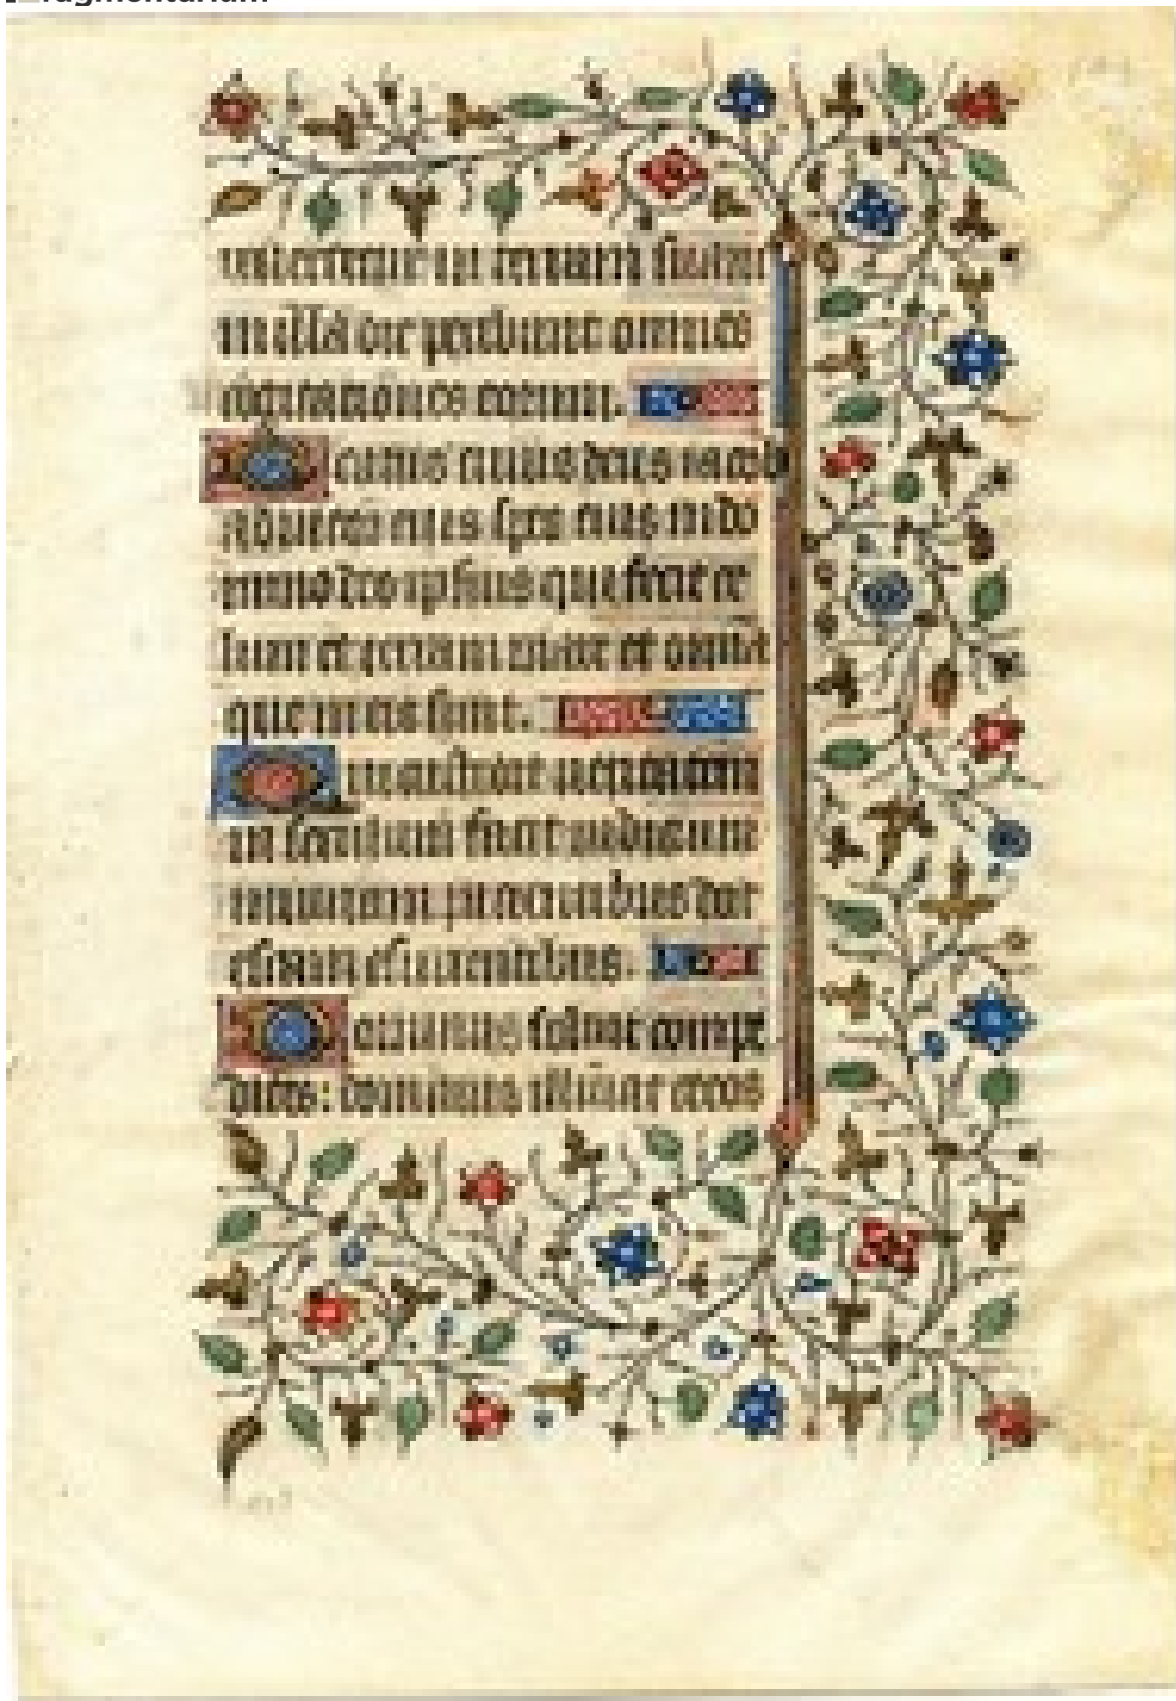 Fragmentarium
uertetur in terram suam
in illa die peribunt omnes
cogitationes eorum.
Beatus cuius deus iacob
adiutor eius spes eius in do
mino deo ipsius qui fecit ce
lum et terram mare et omnia
que in eis sunt.
Qui custodit ueritatem
in seculum facit iudicium
iniuriam pacientibus dat
escam esurientibus.
Dominus soluit compe
ditos: dominus illuminat cecos